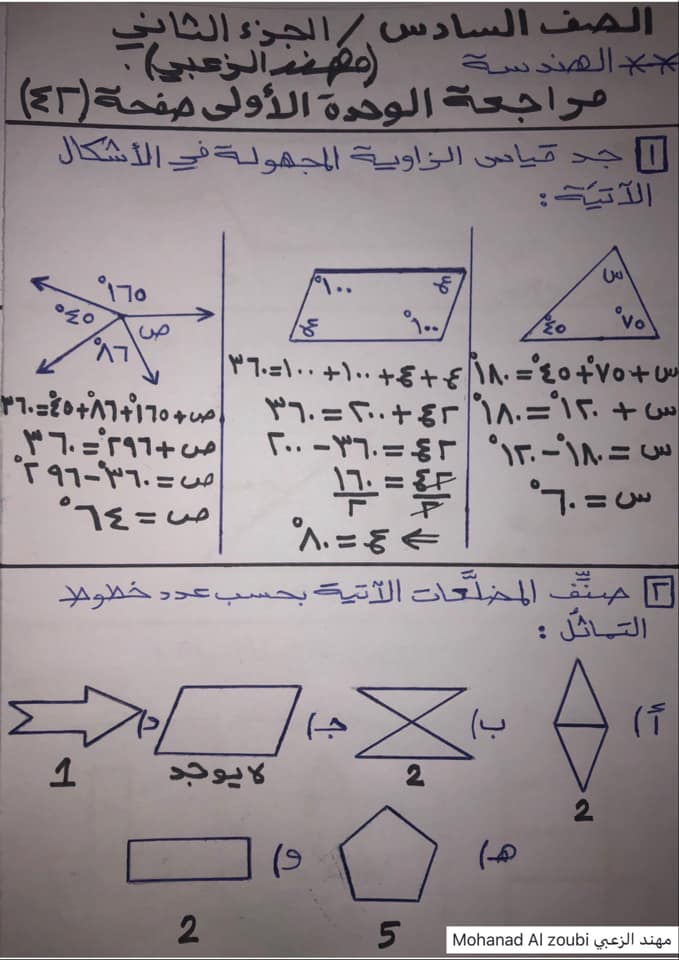 الصف السادس / الجزء الثاني
** الهندسة (مهند الزعبي).
مراجعة الوحدة الأولى صفحة (٤٢)
١ جد قياس الزاوية المجهولة في الأشكال
الآتية:
س
٤٥° ٧٥°
س + ٧٥° + ٤٥° = ١٨٠°
س + ١٢٠° = ١٨٠°
س = ١٨٠° - ١٢٠°
س = ٦٠°
١٠٠° ع
ع ١٠٠°
ع + ع + ١٠٠ + ١٠٠ = ٣٦٠
٢ع + ٢٠٠ = ٣٦٠
٢ع = ٣٦٠ - ٢٠٠
٢ع = ١٦٠
٢ ٢
⇐ ع = ٨٠°
١٦٥°
٤٥° ص
٨٦°
ص + ١٦٥° + ٨٦° + ٤٥° = ٣٦٠
ص + ٢٩٦° = ٣٦٠°
ص = ٣٦٠° - ٢٩٦°
ص = ٦٤°
٢ صنِّف المضلَّعات الآتية بحسب عدد خطوط
التماثل:
أ) ب) جـ) د)
2 2 لا يوجد 1
هـ) و)
5 2
Mohanad Al zoubi مهند الزعبي